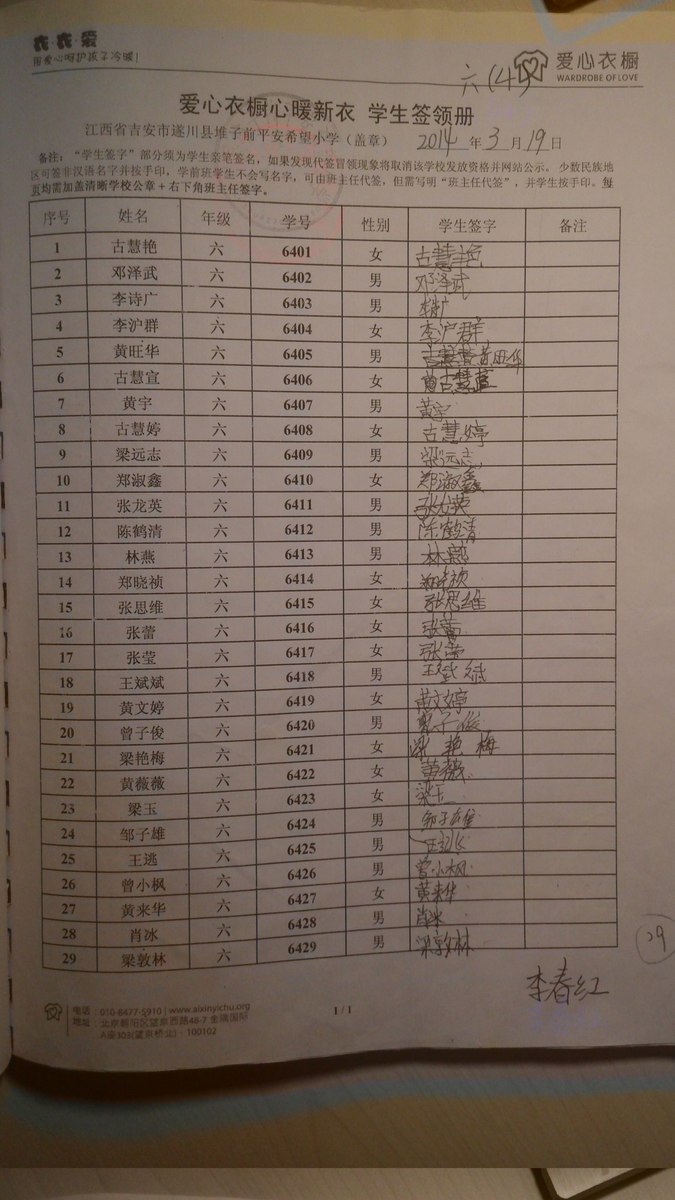 衣·衣·爱
用爱心呵护孩子冷暖!
爱心衣橱
WARDROBE OF LOVE
六(4)
爱心衣橱心暖新衣 学生签领册
江西省吉安市遂川县堆子前平安希望小学(盖章) 2014 年 3 月 19 日
备注:“学生签字”部分须为学生亲笔签名,如果发现代签冒领现象将取消该学校发放资格并网站公示。少数民族地
区可签非汉语名字并按手印,学前班学生不会写名字,可由班主任代签,但需写明“班主任代签”,并学生按手印。每
页均需加盖清晰学校公章+右下角班主任签字。
序号 姓名 年级 学号 性别 学生签字 备注
1 古慧艳 六 6401 女 古慧艳
2 邓泽武 六 6402 男 邓泽武
3 李诗广 六 6403 男 李诗广
4 李沪群 六 6404 女 李沪群
5 黄旺华 六 6405 男 黄旺华
6 古慧宣 六 6406 女 古慧萱
7 黄宇 六 6407 男 黄宇
8 古慧婷 六 6408 女 古慧婷
9 梁远志 六 6409 男 梁远志
10 郑淑鑫 六 6410 女 郑淑鑫
11 张龙英 六 6411 男 张龙英
12 陈鹤清 六 6412 男 陈鹤清
13 林燕 六 6413 男 林燕
14 郑晓祯 六 6414 女 郑晓祯
15 张思维 六 6415 女 张思维
16 张蕾 六 6416 女 张蕾
17 张莹 六 6417 女 张莹
18 王斌斌 六 6418 男 王斌斌
19 黄文婷 六 6419 女 黄文婷
20 曾子俊 六 6420 男 曾子俊
21 梁艳梅 六 6421 女 梁艳梅
22 黄薇薇 六 6422 女 黄薇
23 梁玉 六 6423 女 梁玉
24 邹子雄 六 6424 男 邹子雄
25 王逃 六 6425 男
26 曾小枫 六 6426 男 曾小枫
27 黄来华 六 6427 女 黄来华
28 肖冰 六 6428 男 肖冰
29 梁敦林 六 6429 男 梁敦林
29
李春红
电话:010-8477-5910 | www.aixinyichu.org
地址:北京朝阳区望京西路48-7 金隅国际
A座303(望京桥公)·100102
1 / 1